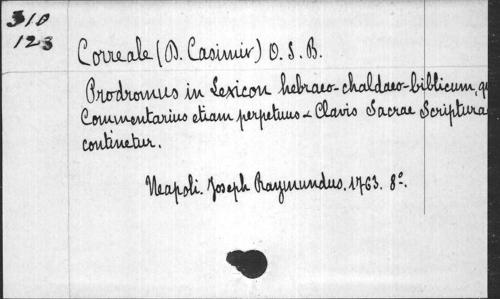 310
123
Correale (D. Casimir) O. S. B.
Prodromus in Lexicon hebraeo-chaldaeo-biblicum, qu
Commentarius etiam perpetuus & Clavis Sacrae Scriptura
continetur.
Neapoli. Joseph Raymundus. 1763. 8º.